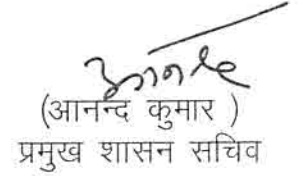 आनन्द
(आनन्द कुमार )
प्रमुख शासन सचिव